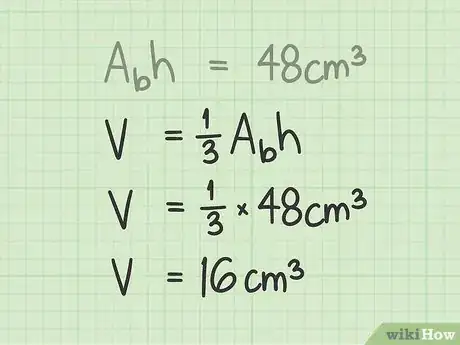 A_b h = 48cm³
V = 1/3 A_b h
V = 1/3 × 48cm³
V = 16cm³
wikiHow